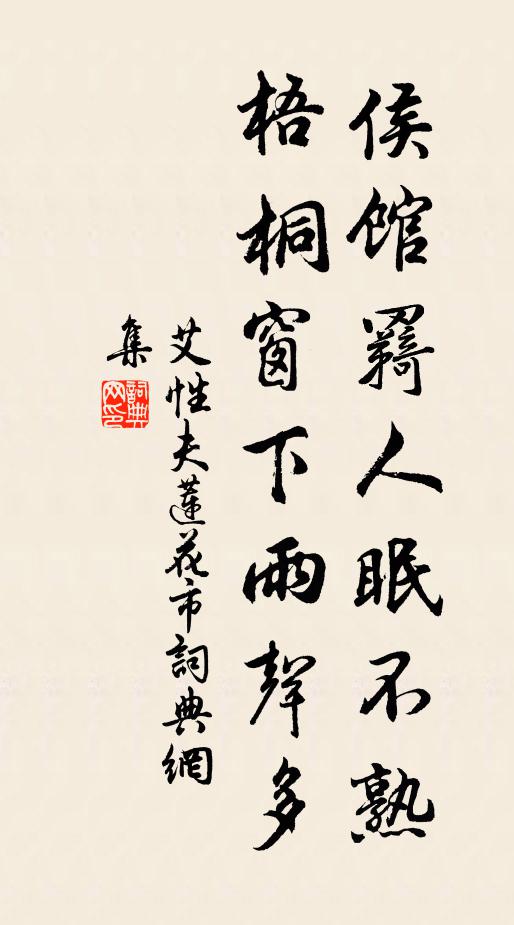 侯館羇人眠不熟
梧桐窗下雨聲多
艾性夫蓮花市詞典網
集
詞典网印